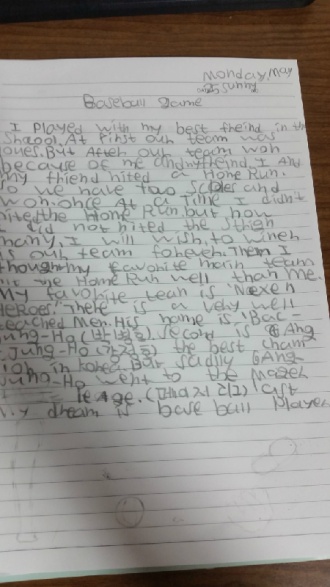 Monday, May
25 sunny
Baseball Game
I played with my best freind in the
School. At first our team was
But After our team won
because of me and freind. I and
my friend hited a Home Run.
we have two and
won. once At a Time I didn't
hited the Home Run. but now
I did not hited the
many. I will wish to when
is our team forever. Then I
thought my favorite team
the Home Run well than me.
My favorite team is 'Nexen
HeRoes'. There is a very well
Men. His name is 'Bac-
Jung-Ho (박병호) second is GAng
Jung-Ho (강정호) the best cham
ion in korea. But sadly GAng
Jung-Ho went to the
leage. (메이저 리그) last
my dream is base ball Player